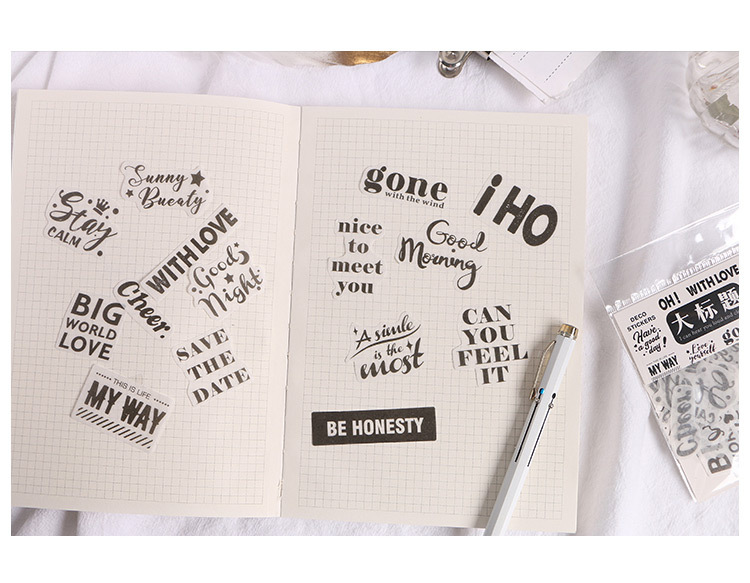 Sunny
Bueaty
Stay
CALM
WITH LOVE
Good
Night
Cheer.
BIG
WORLD
LOVE
SAVE
THE
DATE
THIS IS LIFE
MY WAY
gone
with the wind
¡HO
nice
to
meet
you
Good
Morning
A simle
is the
most
CAN
YOU
FEEL
IT
BE HONESTY
OH! WITH LOVE
DECO
STICKERS
大标题
Have
a good
day!
Love
yourself
good
MY WAY